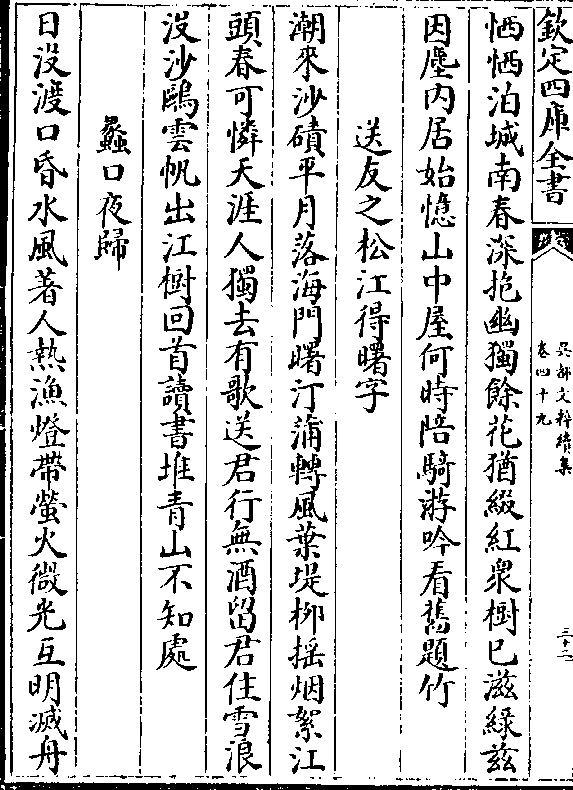 欽定四庫全書
吳都文粹續集
卷四十九
三十二
恓恓泊城南春深抱幽獨餘花猶綴紅衆樹已滋綠兹
因塵内居始憶山中屋何時陪騎游吟看舊題竹
送友之松江得曙字
潮來沙磧平月落海門曙汀蒲轉風葉堤栁揺烟絮江
頭春可憐天涯人獨去有歌送君行無酒留君住雪浪
没沙鷗雲帆出江樹回首讀書堆青山不知處
蠡口夜歸
日没渡口昏水風著人熱漁燈帶螢火微光互明滅舟